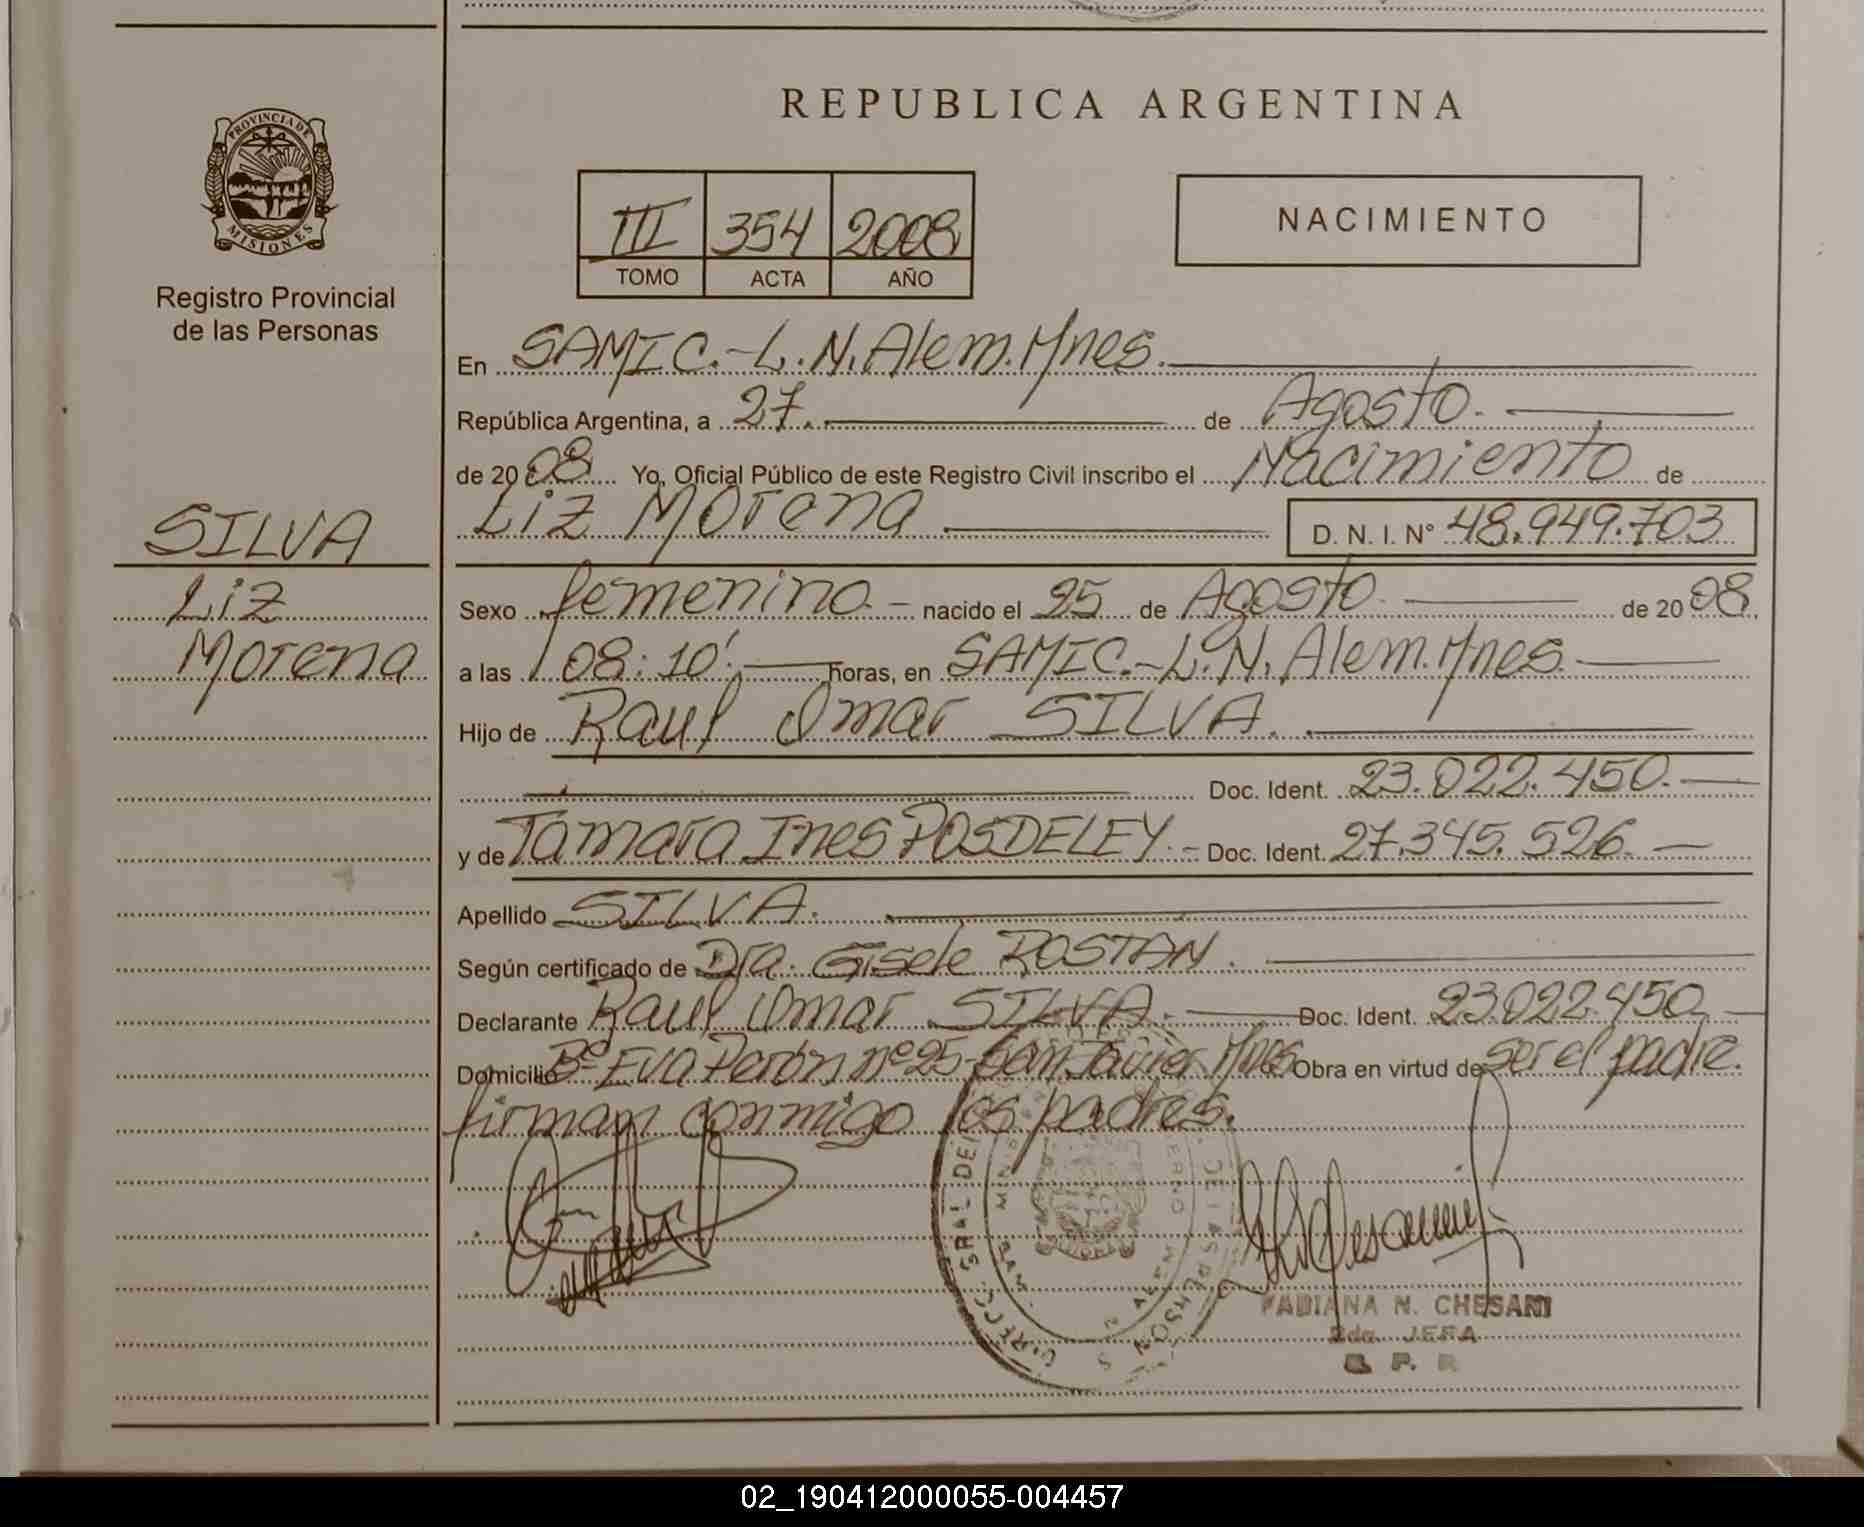 REPUBLICA ARGENTINA
PROVINCIA DE MISIONES
Registro Provincial
de las Personas
III 354 2008
TOMO ACTA AÑO
NACIMIENTO
En SAMIC.-L.N.Alem.Mnes.
República Argentina, a 27. de Agosto.
de 20 08 Yo, Oficial Público de este Registro Civil inscribo el Nacimiento de
Liz Morena D. N. I. N° 48.949.703
SILVA
Liz
Morena
Sexo femenino.- nacido el 25 de Agosto de 20 08
a las 08:10'. horas, en SAMIC.-L.N.Alem.Mnes.
Hijo de Raul Omar SILVA.
Doc. Ident. 23.022.450.-
y de Tamara Ines POSDELEY.- Doc. Ident. 27.345.526.-
Apellido SILVA.
Según certificado de Dra. Gisele ROSTAN.
Declarante Raul Omar SILVA.- Doc. Ident. 23.022.450.-
Domicilio Bº Eva Perón nº 25-San Javier.Mnes Obra en virtud de ser el padre.
firman conmigo los padres.
FABIANA N. CHESANI
2da. JEFA
R. P. P.
02_190412000055-004457